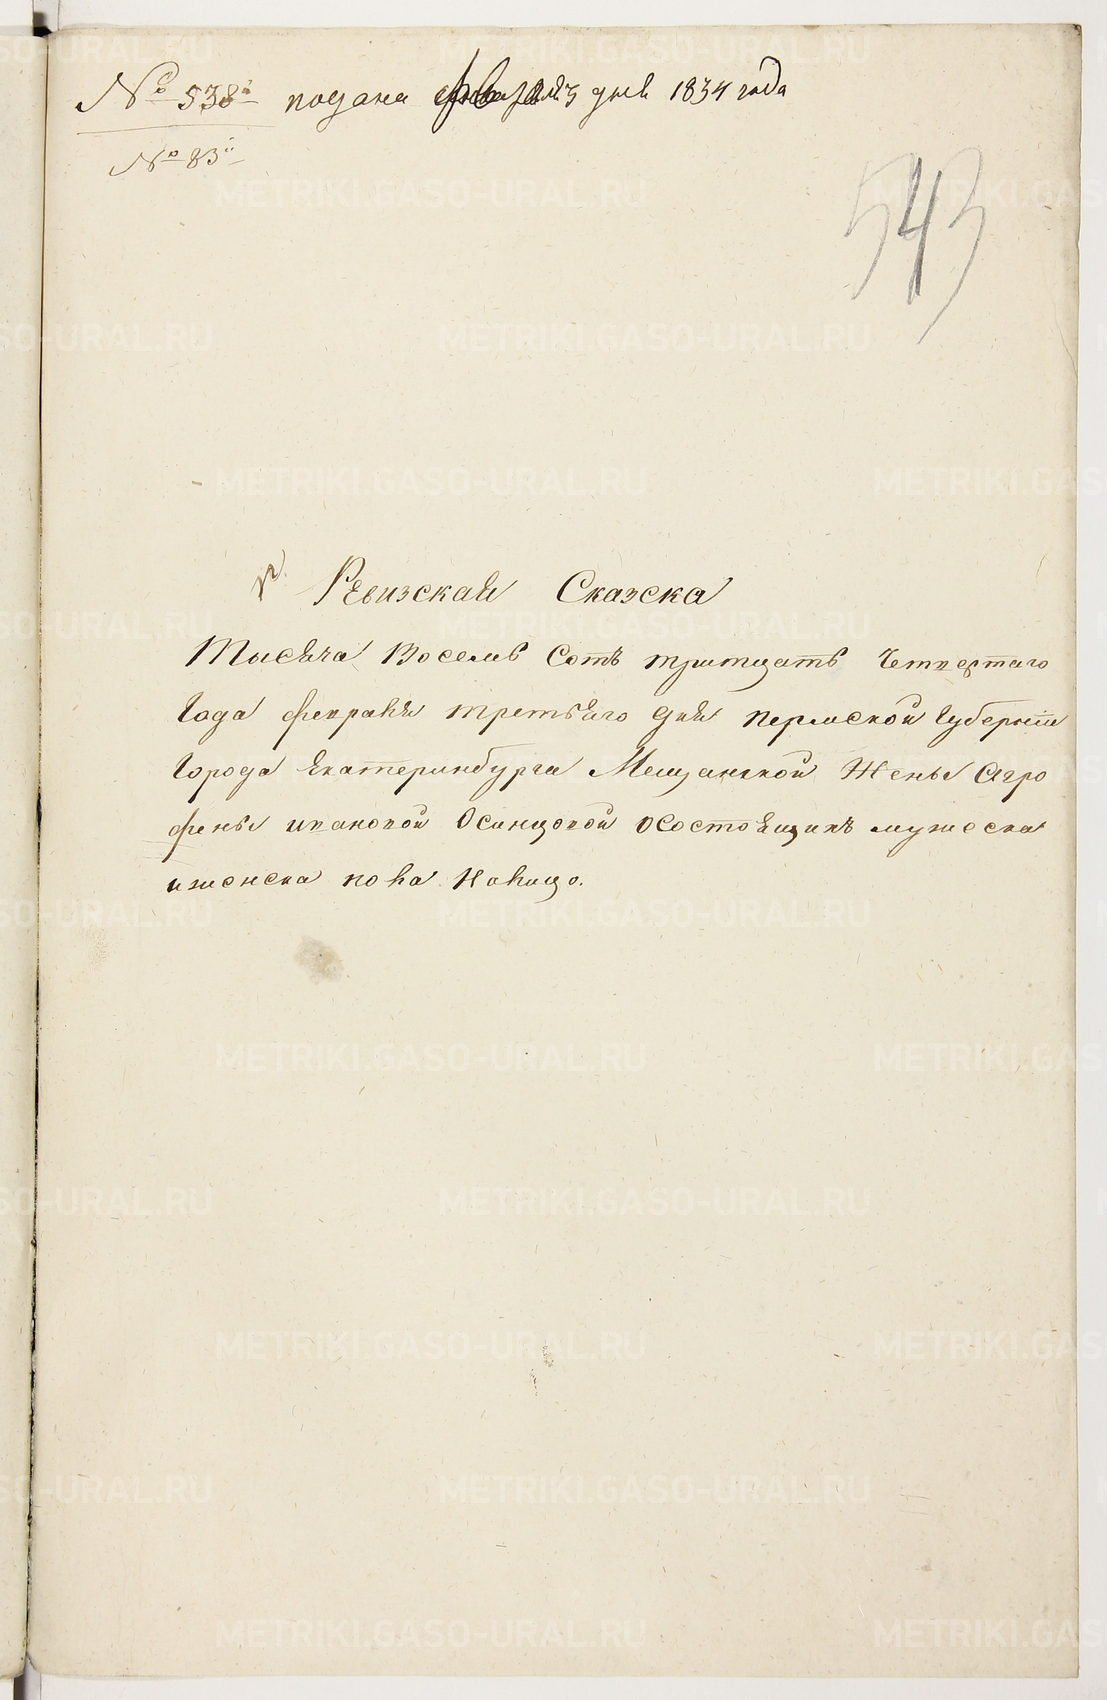 № 538й подана февраля 3 дня 1834 года
№ 83й
543
Ревизская Сказска
Тысяча Восемь Сотъ тритцать Четвертаго
Года февраля третьяго дня пермской Губернии
Города Екатеринбурга Мещанской Жены Агро
фены ивановой Осинцовой осостоящихъ мужеска
иженска пола Налицо.
METRIKI.GASO-URAL.RU